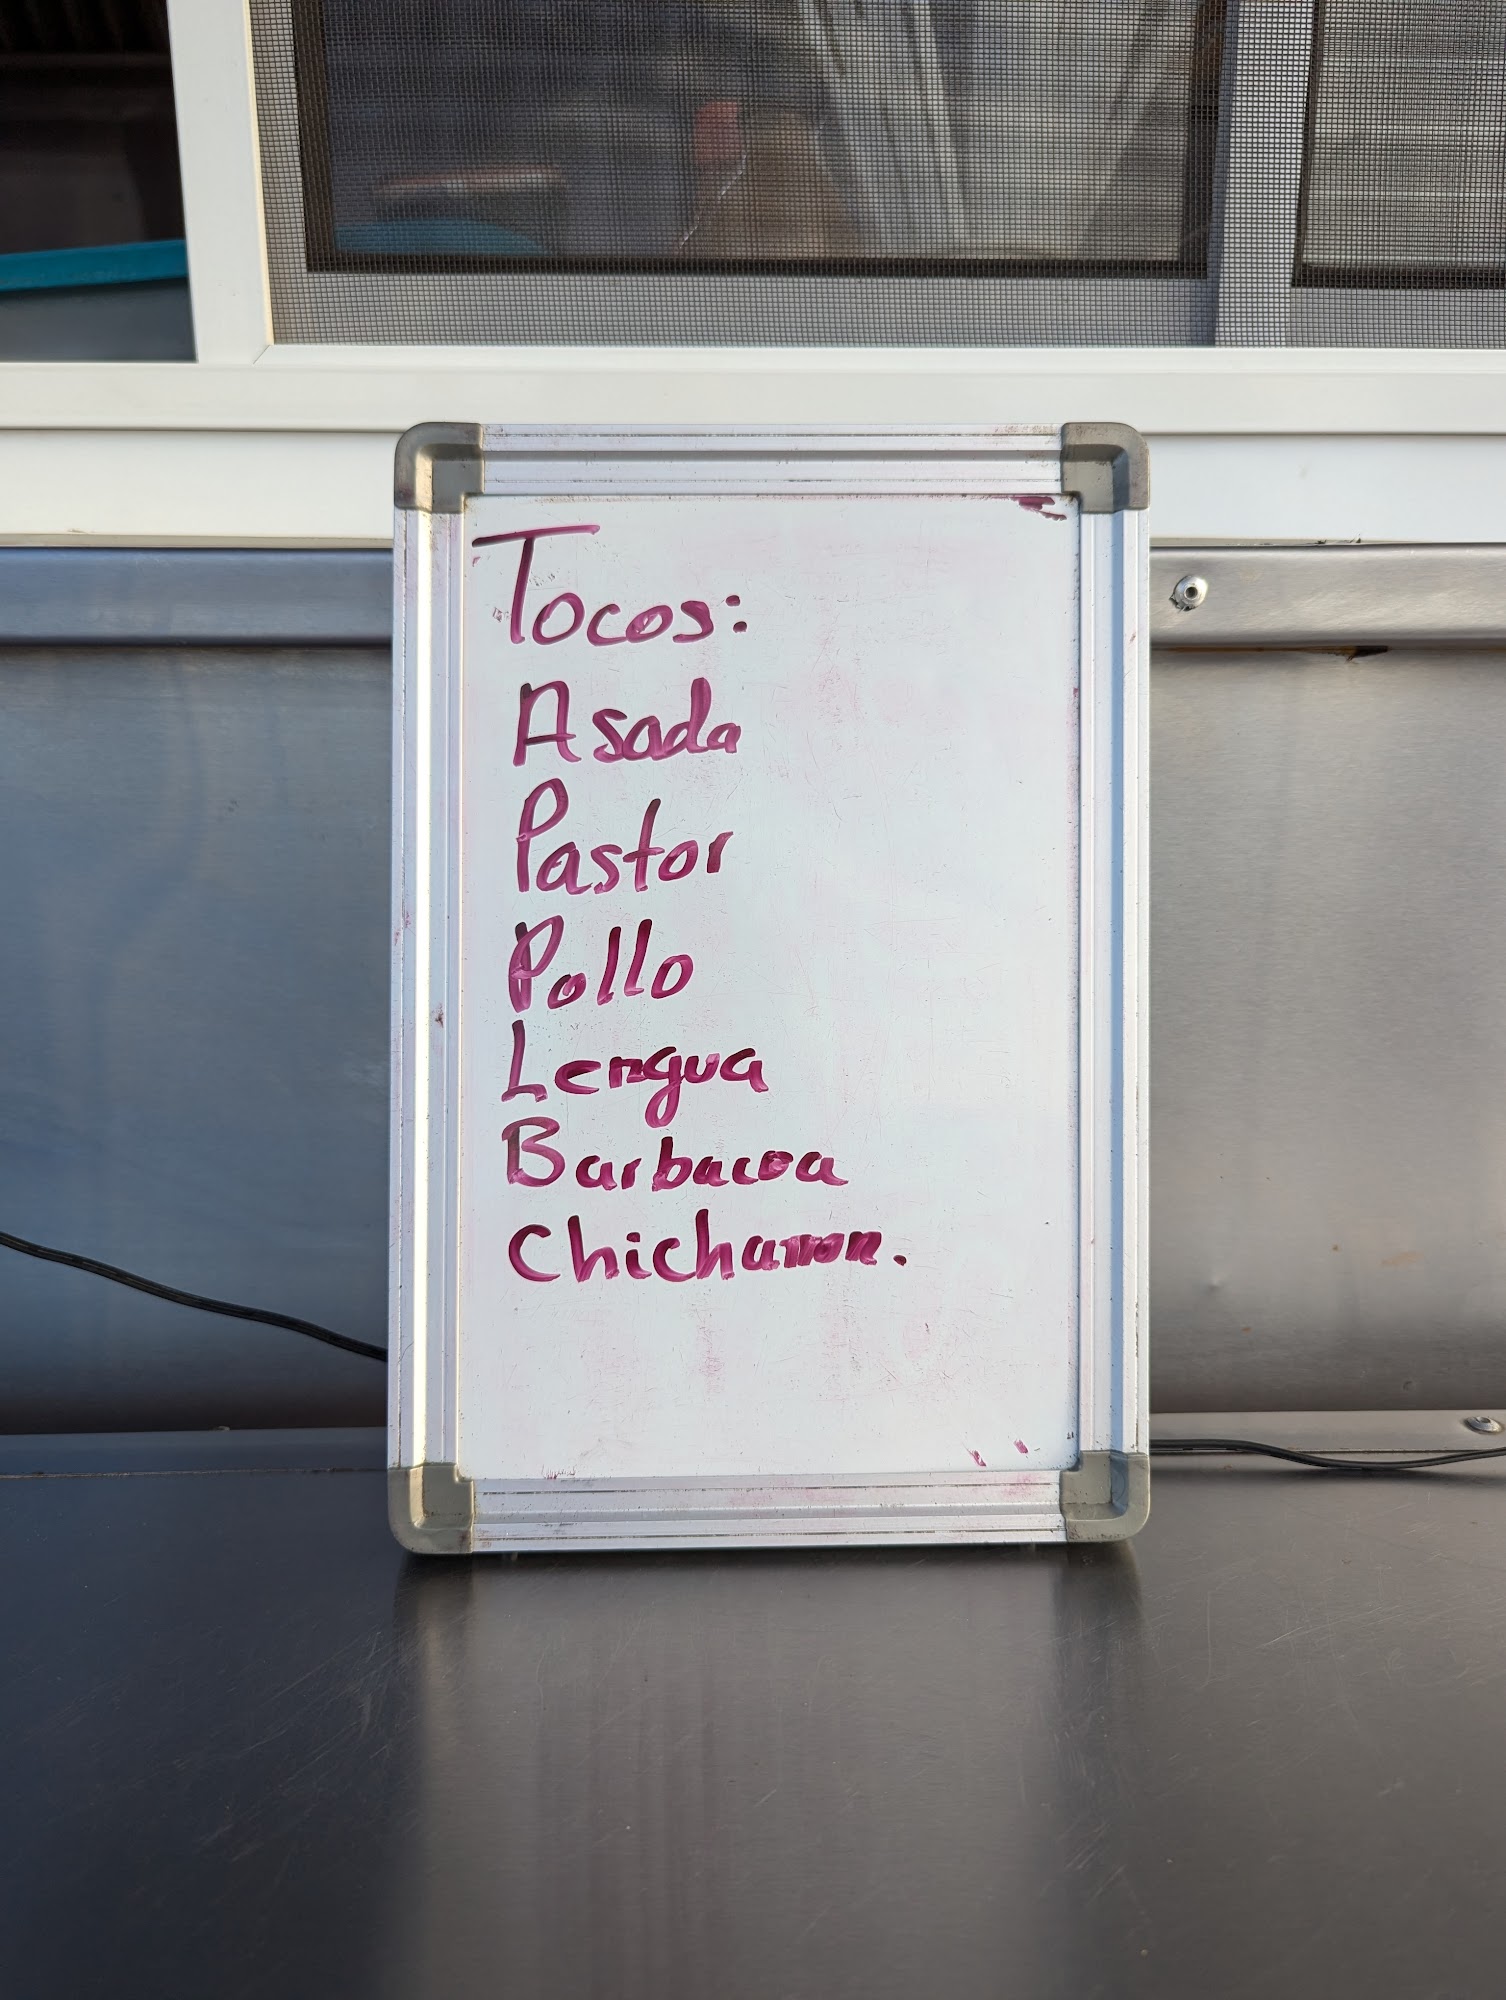 Tacos:
Asada
Pastor
Pollo
Lengua
Barbacoa
Chicharron.